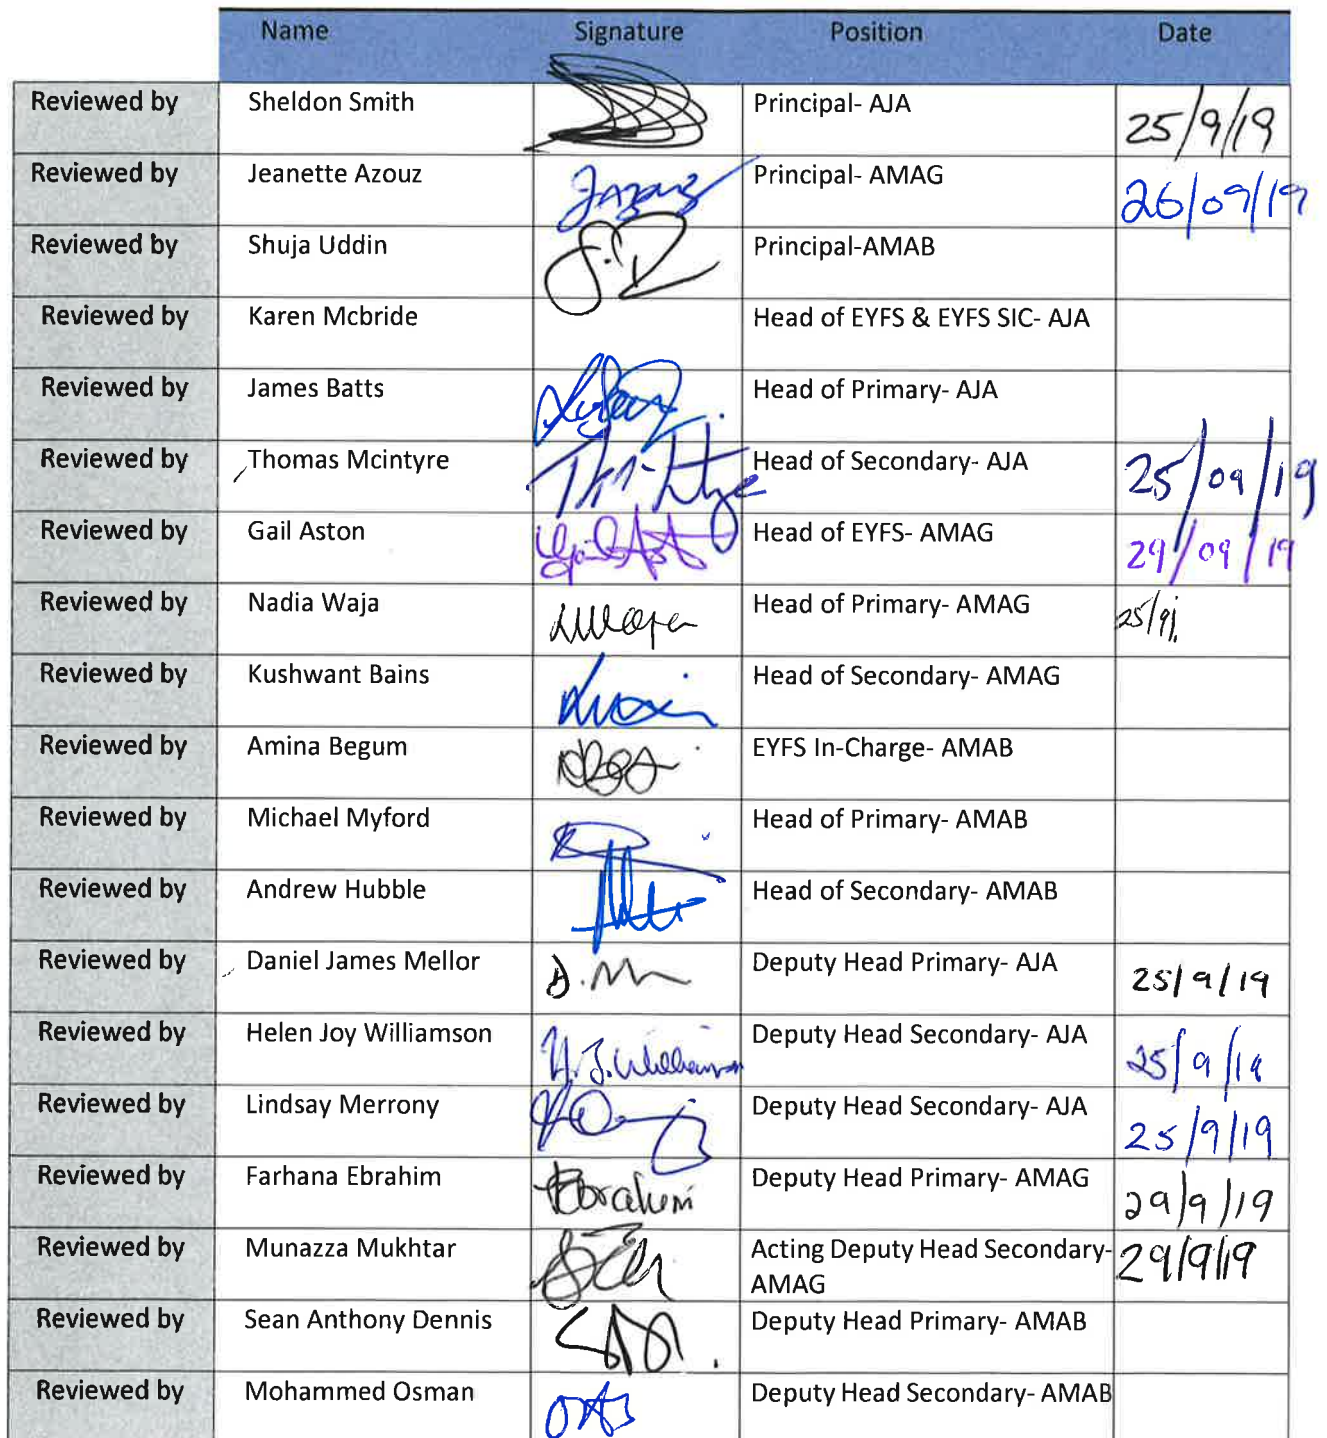 Name Signature Position Date
Reviewed by Sheldon Smith Principal- AJA 25/9/19
Reviewed by Jeanette Azouz Principal- AMAG 26/09/19
Reviewed by Shuja Uddin Principal-AMAB
Reviewed by Karen Mcbride Head of EYFS & EYFS SIC- AJA
Reviewed by James Batts Head of Primary- AJA
Reviewed by Thomas Mcintyre Head of Secondary- AJA 25/09/19
Reviewed by Gail Aston Head of EYFS- AMAG 29/09/19
Reviewed by Nadia Waja Head of Primary- AMAG 25/9/
Reviewed by Kushwant Bains Head of Secondary- AMAG
Reviewed by Amina Begum EYFS In-Charge- AMAB
Reviewed by Michael Myford Head of Primary- AMAB
Reviewed by Andrew Hubble Head of Secondary- AMAB
Reviewed by Daniel James Mellor D.M Deputy Head Primary- AJA 25/9/19
Reviewed by Helen Joy Williamson H.J.Williamson Deputy Head Secondary- AJA 25/9/19
Reviewed by Lindsay Merrony Deputy Head Secondary- AJA 25/9/19
Reviewed by Farhana Ebrahim FEbrahim Deputy Head Primary- AMAG 29/9/19
Reviewed by Munazza Mukhtar Acting Deputy Head Secondary- 29/9/19
AMAG
Reviewed by Sean Anthony Dennis Deputy Head Primary- AMAB
Reviewed by Mohammed Osman Deputy Head Secondary- AMAB